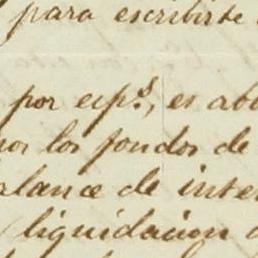 para escribirte
por esps, es ab
por los fondos de
alance de inter
liquidacion